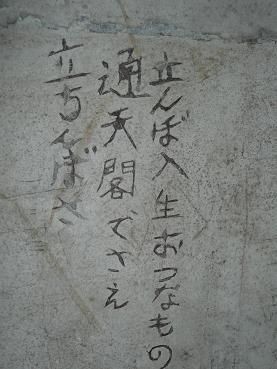 立んぼ人生おつなもの
通天閣でさえ
立ちんぼさ